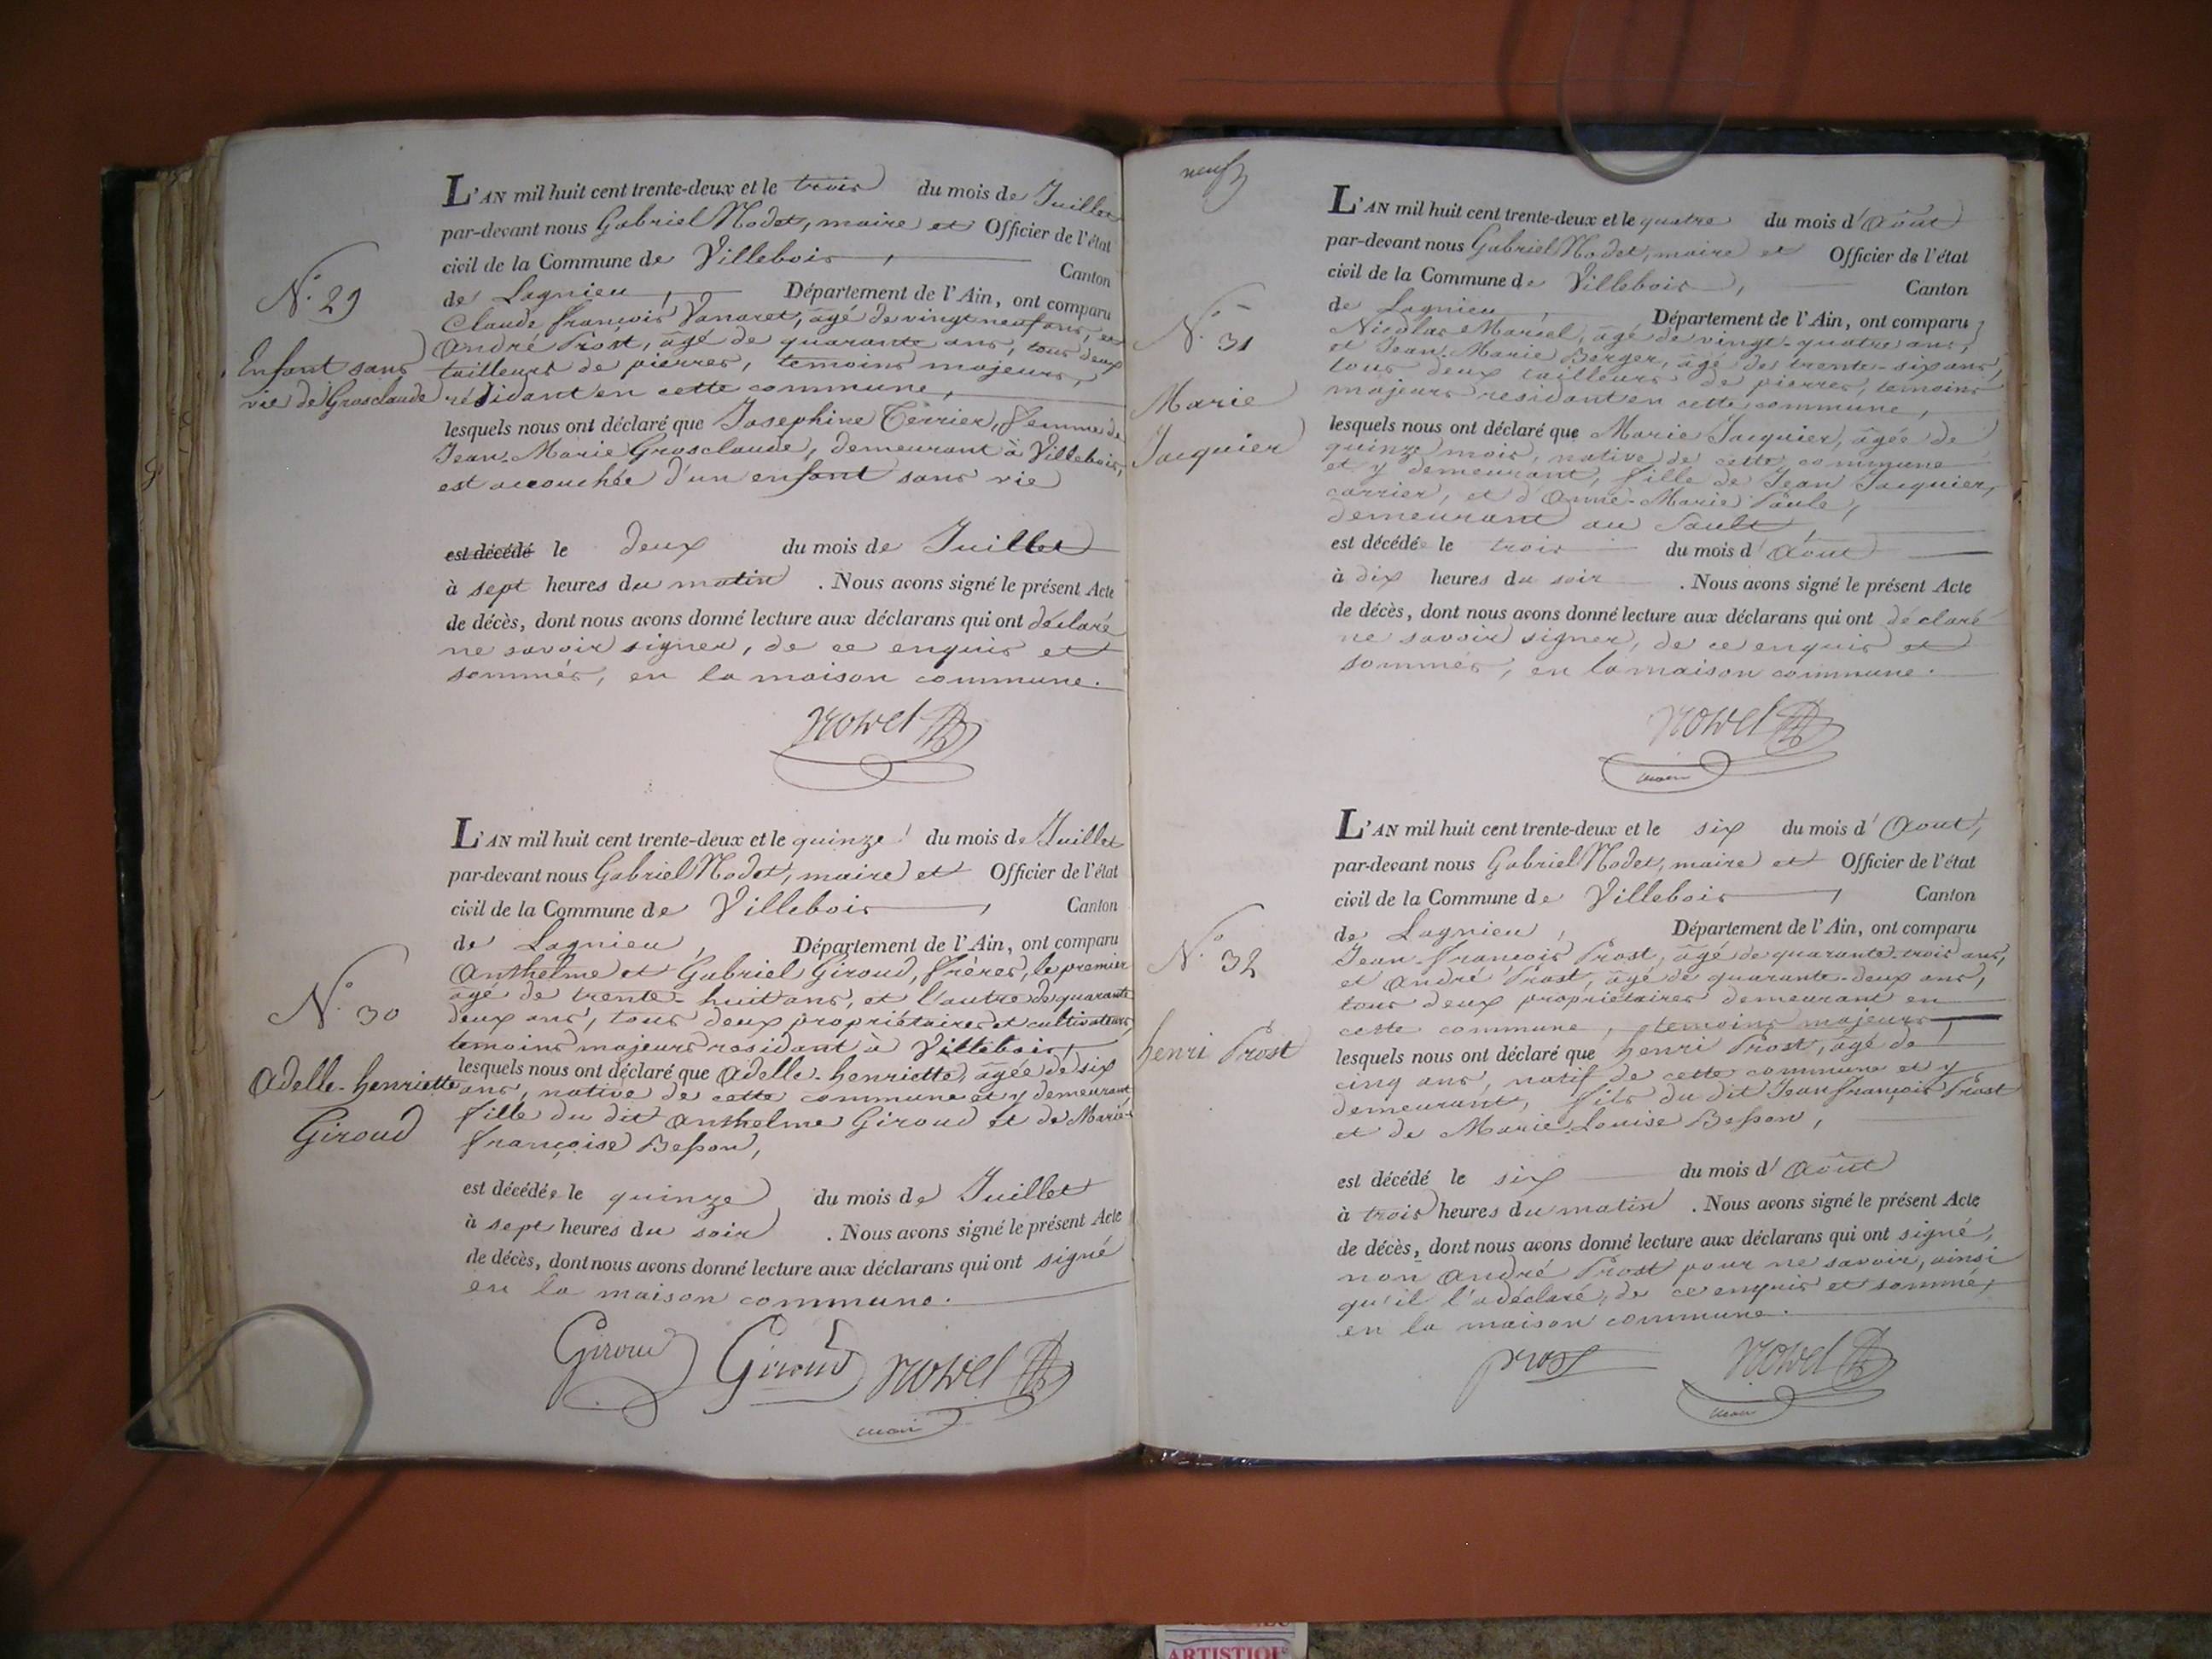 L'AN mil huit cent trente-deux et le trois du mois de Juillet
par-devant nous Gabriel Nodet, maire et Officier de l'état
civil de la Commune de Villebois, Canton
de Lagnieu, Département de l'Ain, ont comparu
Claude françois Vanaret, âgé de vingt neuf ans, et
André Prost, âgé de quarante ans, tous deux
tailleurs de pierres, temoins majeurs,
résidant en cette commune,
N.° 29
Enfant sans
vie de Grosclaude
lesquels nous ont déclaré que Josephine Terrier, femme de
Jean-Marie Grosclaude, demeurant à Villebois,
est accouchée d'un enfant sans vie
est décédé le deux du mois de Juillet
à sept heures du matin. Nous avons signé le présent Acte
de décès, dont nous avons donné lecture aux déclarans qui ont déclaré
ne savoir signer, de ce enquis et
sommés, en la maison commune.
L'AN mil huit cent trente-deux et le quinze du mois de Juillet
par-devant nous Gabriel Nodet, maire et Officier de l'état
civil de la Commune de Villebois, Canton
de Lagnieu, Département de l'Ain, ont comparu
Anthelme et Gabriel Giroud, frères, le premier
âgé de trente-huit ans, et l'autre de quarante
deux ans, tous deux propriétaires et cultivateurs,
temoins majeurs résidant à Villebois,
N.° 30
Adelle-henriette
Giroud
lesquels nous ont déclaré que Adelle-henriette, âgée de six
ans, native de cette commune et y demeurant
fille du dit Anthelme Giroud et de Marie-
françoise Besson,
est décédée le quinze du mois de Juillet
à sept heures du soir. Nous avons signé le présent Acte
de décès, dont nous avons donné lecture aux déclarans qui ont signé
en la maison commune.
Giroud Giroud
neuf
L'AN mil huit cent trente-deux et le quatre du mois d'Août
par-devant nous Gabriel Nodet, maire et Officier de l'état
civil de la Commune de Villebois, Canton
de Lagnieu, Département de l'Ain, ont comparu
Nicolas Marcel, âgé de vingt-quatre ans,
et Jean-Marie Berger, âgé de trente-six ans,
tous deux tailleurs de pierres, temoins
majeurs residant en cette commune,
N.° 31
Marie
Jacquier
lesquels nous ont déclaré que Marie Jacquier, âgée de
quinze mois, native de cette commune
et y demeurant, fille de Jean Jacquier,
carrier, et d'Anne-Marie Paule,
demeurant au Sault,
est décédée le trois du mois d'Août
à dix heures du soir. Nous avons signé le présent Acte
de décès, dont nous avons donné lecture aux déclarans qui ont déclaré
ne savoir signer, de ce enquis et
sommés, en la maison commune.
L'AN mil huit cent trente-deux et le six du mois d'Aout,
par-devant nous Gabriel Nodet, maire et Officier de l'état
civil de la Commune de Villebois, Canton
de Lagnieu, Département de l'Ain, ont comparu
Jean-françois Prost, âgé de quarante-trois ans,
et André Prost, âgé de quarante-deux ans,
tous deux propriétaires demeurant en
cette commune, temoins majeurs
N.° 32
henri Prost
lesquels nous ont déclaré que henri Prost, âgé de
cinq ans, natif de cette commune et y
demeurant, fils du dit Jean françois Prost
et de Marie-Louise Besson,
est décédé le six du mois d'Août
à trois heures du matin. Nous avons signé le présent Acte
de décès, dont nous avons donné lecture aux déclarans qui ont signé,
non André Prost pour ne savoir, ainsi
qu'il l'a déclaré, de ce enquis et sommé,
en la maison commune.
prost
ARTISTIQUE